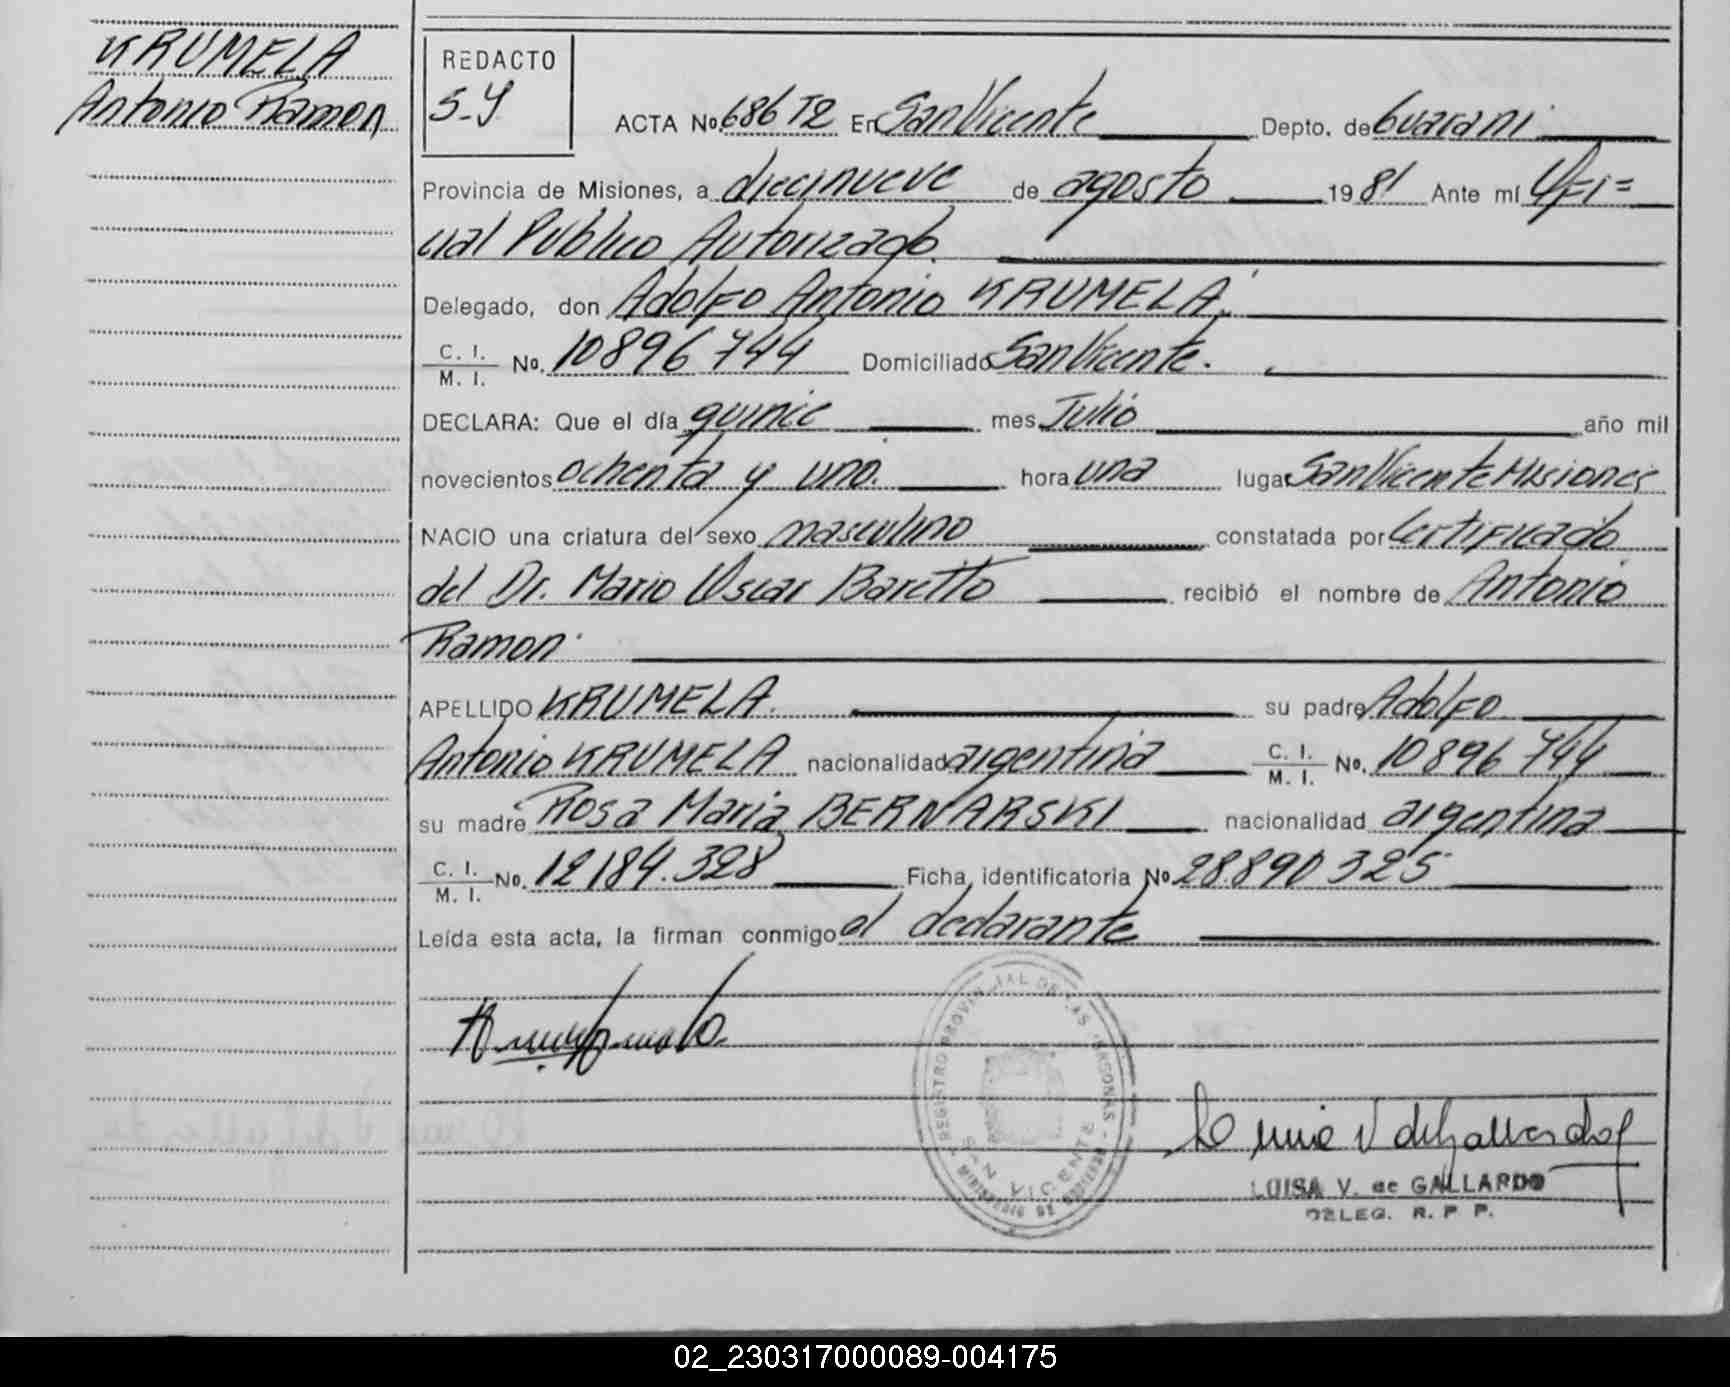 KRUMELA
Antonio Ramon
REDACTO
S.Y
ACTA No. 686 T2 En San Vicente Depto. de Guarani
Provincia de Misiones, a diecinueve de agosto 1981 Ante mí Ofi=
cial Público Autorizado.
Delegado, don Adolfo Antonio KRUMELA.
C. I. / M. I. No. 10896744 Domiciliado San Vicente.
DECLARA: Que el día quince mes Julio año mil
novecientos ochenta y uno. hora una lugar San Vicente Misiones
NACIO una criatura del sexo masculino constatada por Certificado
del Dr. Mario Oscar Baretto recibió el nombre de Antonio
Ramon.
APELLIDO KRUMELA. su padre Adolfo
Antonio KRUMELA nacionalidad argentina C. I. / M. I. No. 10896744
su madre Rosa Maria BERNARSKI nacionalidad argentina
C. I. / M. I. No. 12184.328 Ficha identificatoria No 28.890325
Leída esta acta, la firman conmigo el declarante
REGISTRO PROVINCIAL DE LAS PERSONAS
SAN VICENTE
LUISA V. de GALLARDO
DELEG. R. P. P.
02_230317000089-004175